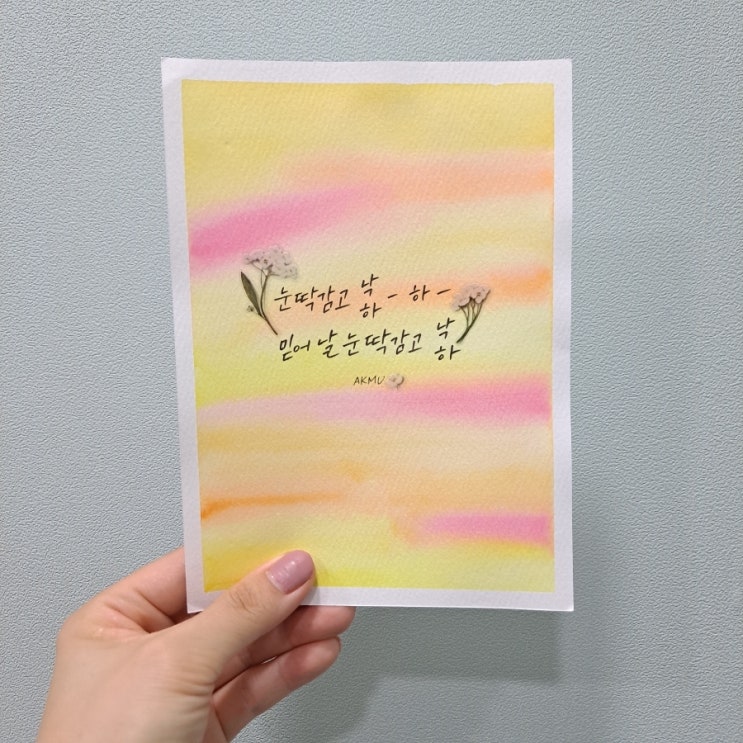 눈 딱 감고 낙하 - 하 -
믿어 날 눈 딱 감고 낙하
AKMU